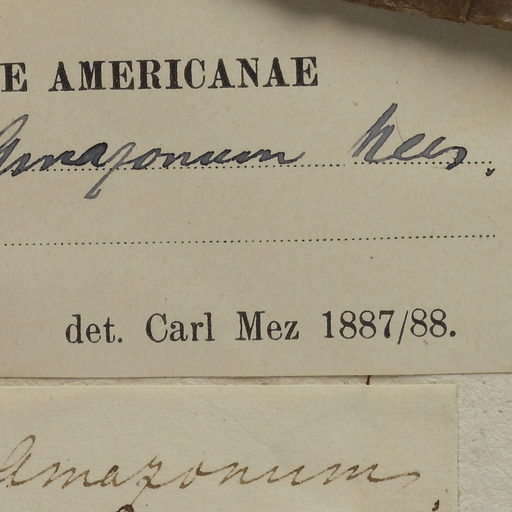 E AMERICANAE
Amazonum Nees.
det. Carl Mez 1887/88.
Amazonum